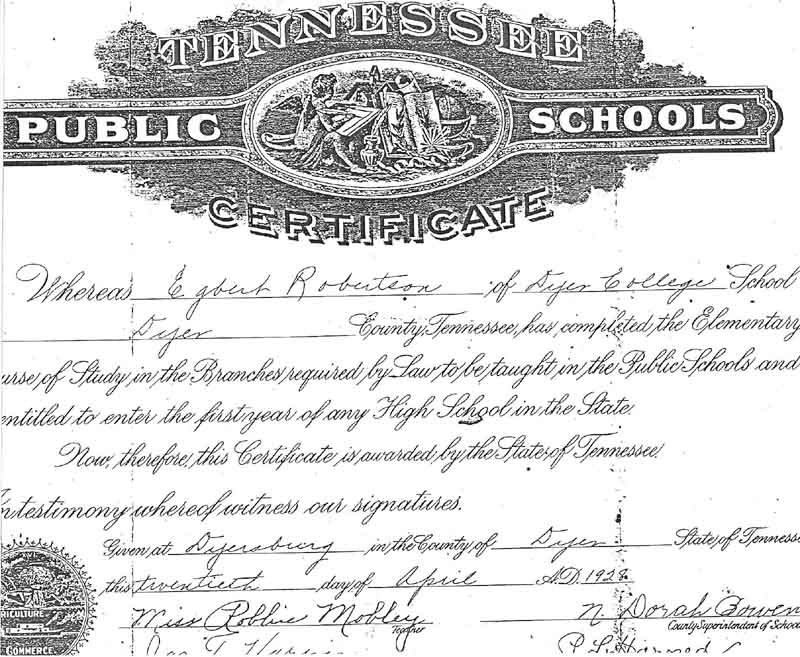 TENNESSEE
PUBLIC SCHOOLS
CERTIFICATE
Whereas Egbert Robertson of Dyer College School
Dyer County, Tennessee, has completed the Elementary
urse of Study in the Branches required by Law to be taught in the Public Schools and
entitled to enter the first year of any High School in the State.
Now, therefore, this Certificate is awarded by the State of Tennessee.
In testimony whereof witness our signatures.
Given at Dyersburg in the County of Dyer State of Tenness
this twentieth day of April A.D. 1928
Miss Robbie Mobley N Dorah Bowen
Teacher County Superintendent of Schoo
RICULTURE
COMMERCE
P. L. Harned